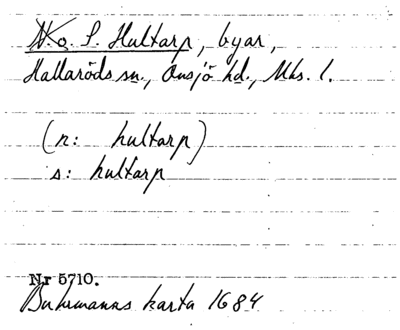 N. o. S. Hultarp, byar,
Hallaröds sn., Onsjö hd., Mhs. l.
(n: hultarp)
s: hultarp
Nr 5710.
Buhrmanns karta 1684